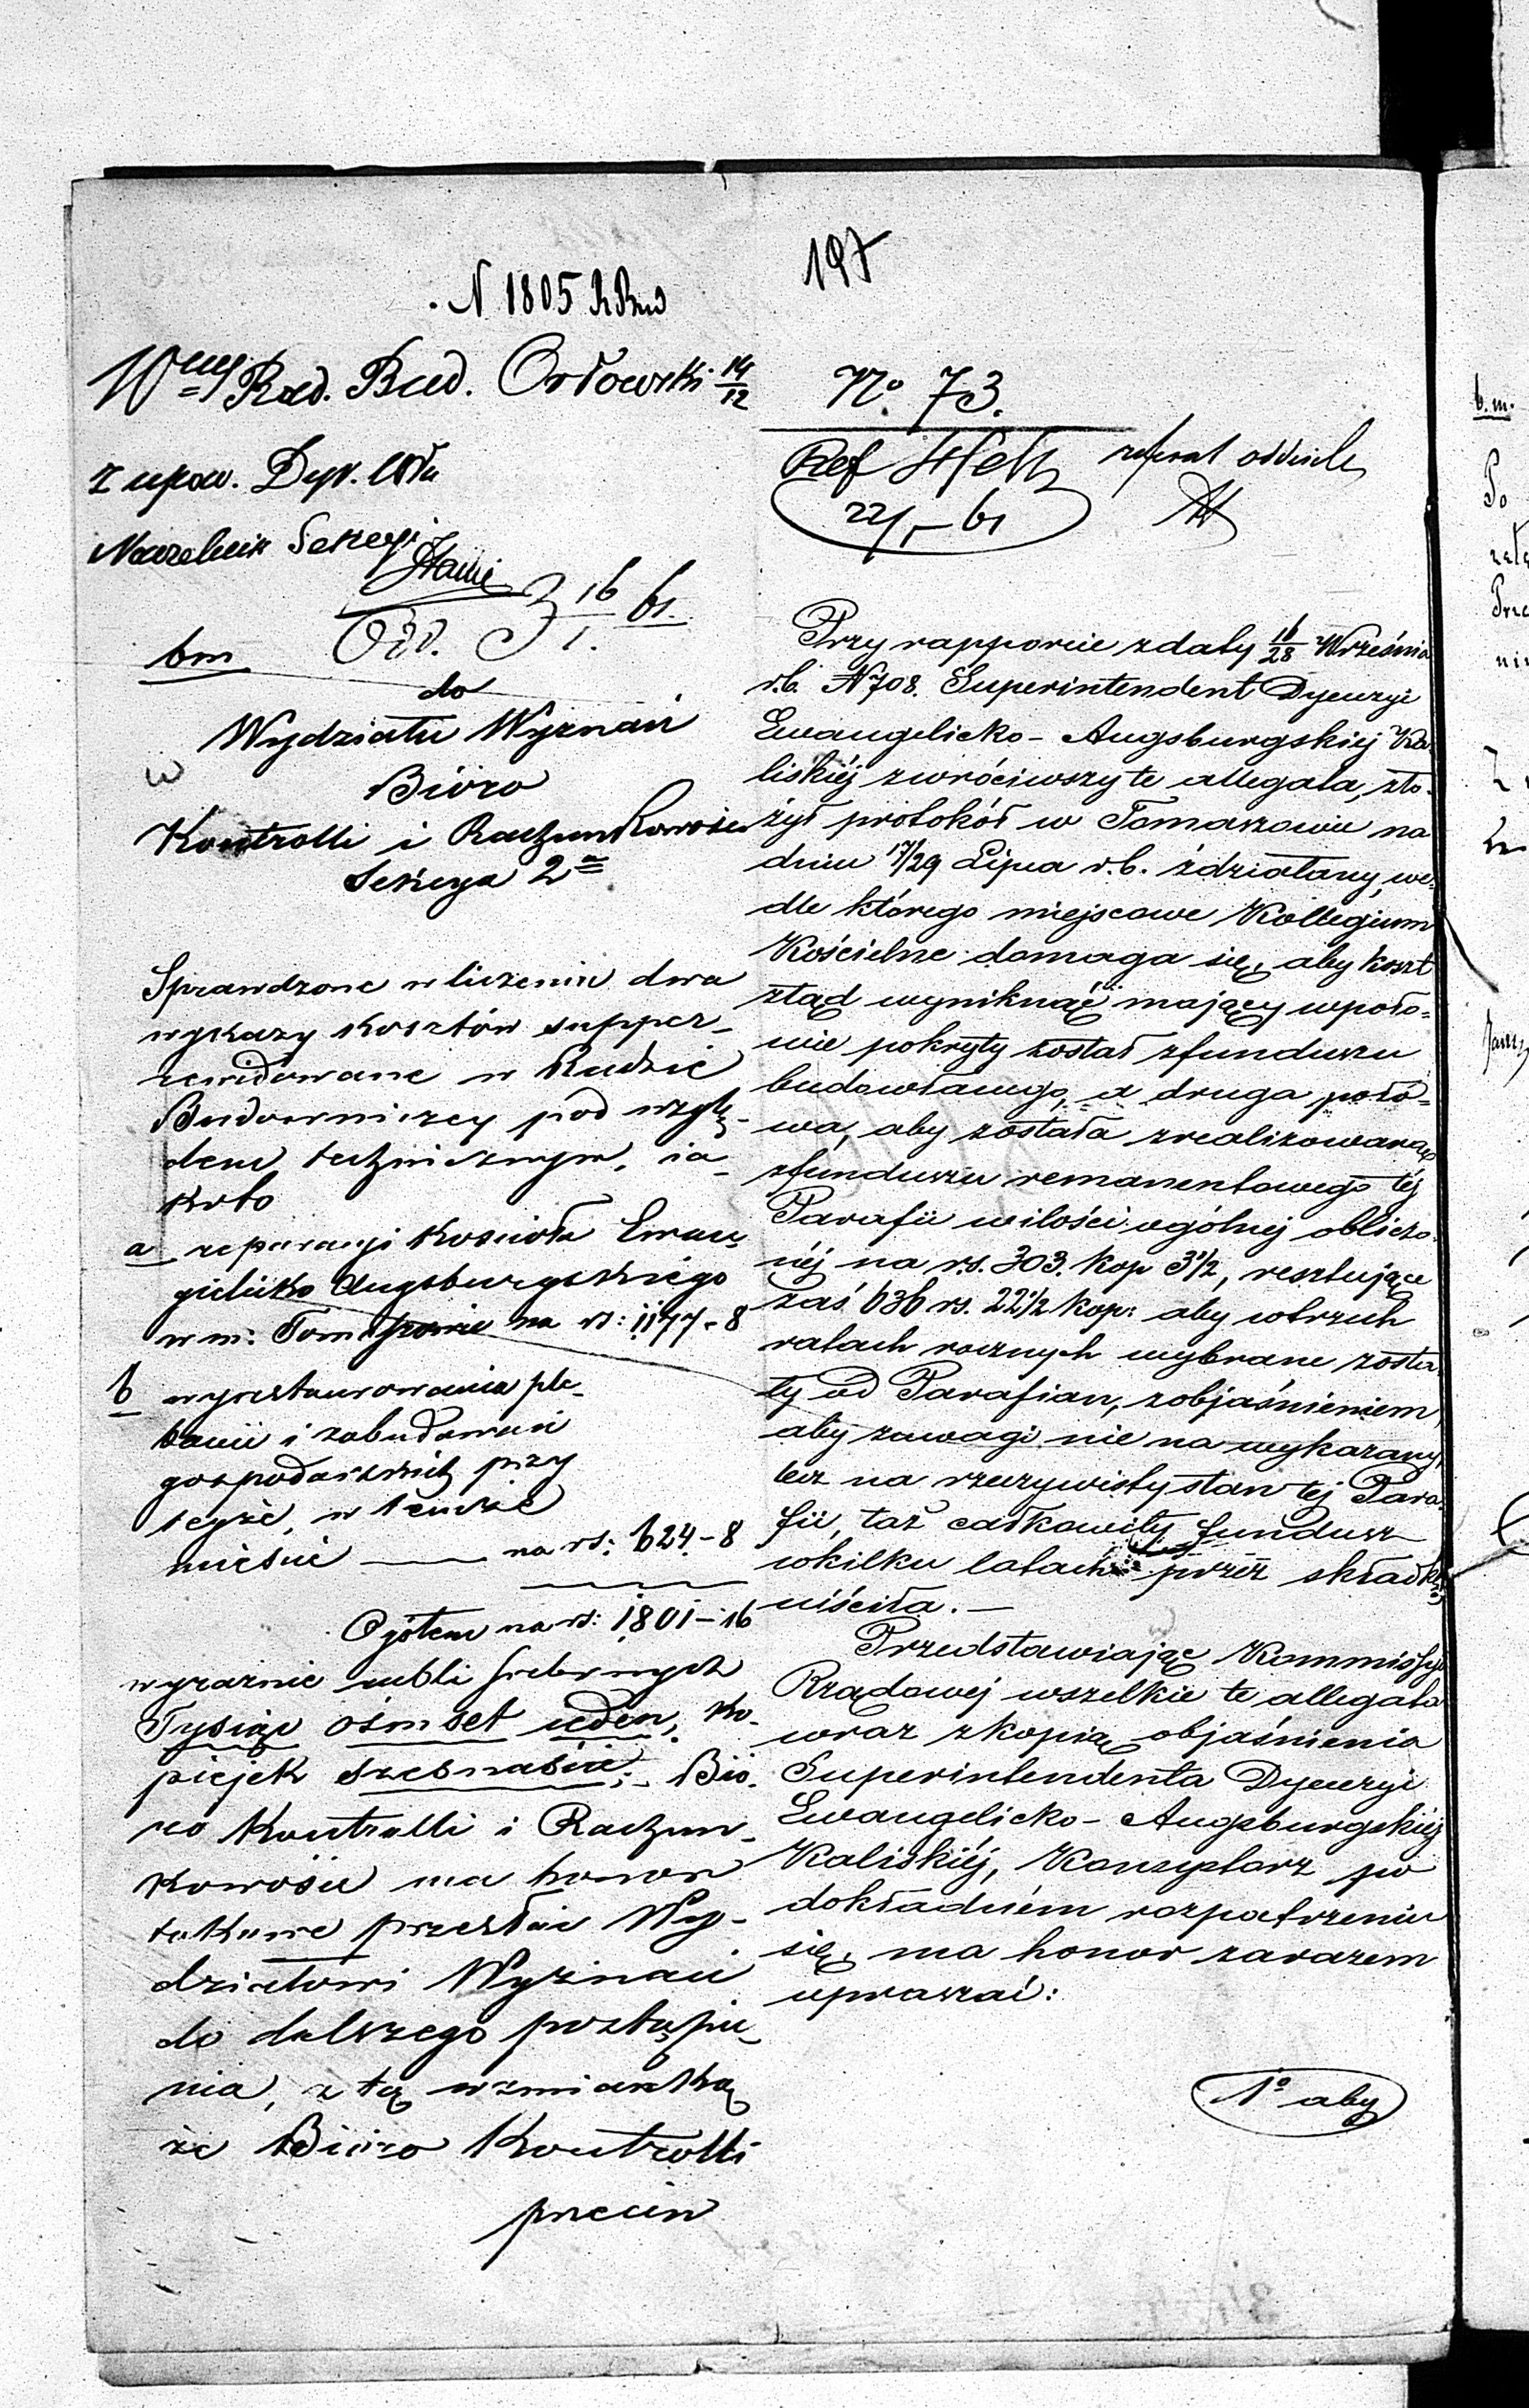 197
N 1805 RBud
Wny Rad. Bud. Orłowski 14/12
z upow. Dyr. Włu
Naczelnik Sekcyi
Odd. 3 16/1. 61.
bm
do
Wydziału Wyznań
Biuro
Kontrolli i Rachunkowości
Sekcya 2a
Sprawdzone w liczeniu dwa
wykazy kosztów supper-
rewidowane w Radzie
Budowniczey pod wzglę-
dem technicznym, ia-
koto
a reparacyi Kościoła Ewan-
gielicko Augsburgskiego
w m: Tomaszowie na rs: 1177-8
b wyrestaurowania ple-
banii i zabudowań
gospodarskich przy
teyże, w temże
mieście — na rs: 624-8
Ogółem na rs: 1801-16
wyraźnie rubli srebrnych
Tysiąc ośmset ieden, ko-
piejek szesnaście; Biu-
ro Kontrolli i Rachun-
kowości ma honor
takowe przesłać Wy-
działowi Wyznań
do dalszego postąpie-
nia, z tą wzmianką
że Biuro Kontrolli
przeciw
No. 73.
Ref referat oddziela
22/1 - 61
Przy rapporcie z daty 16/28 Września
r.b. N 708. Superintendent Dyecezyi
Ewangelicko-Augsburgskiej Ka-
liskiéj zwróciwszy te allegata, zło-
żył protokół w Tomaszowie na
dniu 17/29 Lipca r.b. zdziałany, we-
dle którego miejscowe Kollegium
Kościelne domaga się, aby koszt
ztąd wyniknąć mający wpoło-
wie pokryty został zfunduszu
budowlanego, a druga poło-
wa, aby została zrealizowaną
zfunduszu remanentowego téj
Parafii wilości ogólnej obliczo-
néj na rs. 303. kop 3½, resztujące
zaś 636 rs. 22½ kop: aby wtrzech
ratach rocznych wybrane zosta-
ły od Parafian, zobjaśnieniem,
aby zuwagi nie na wykazany
lecz na rzeczywisty stan tej Para-
fii, taż całkowity fundusz
wkilku latach przez składkę
uiściła. —
Przedstawiając Kommissyi
Rządowej wszelkie te allegata
wraz zkopią objaśnienia
Superintendenta Dyecezyi
Ewangelicko-Augsburgskiéj
Kaliskiéj, Konsystorz po
dokładném rozpatrzeniu
się, ma honor zarazem
upraszać:
1o aby